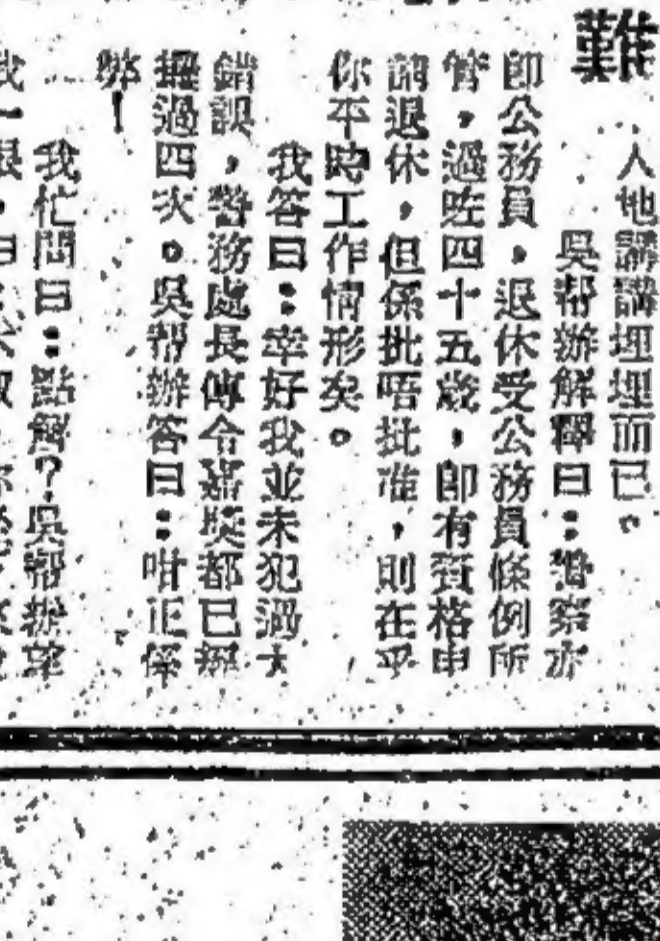 難
人地講講埋埋而已。
吳帮辦解釋曰：警察亦
即公務員，退休受公務員條例所
管，過咗四十五歲，即有資格申
請退休，但係批唔批准，則在乎
你平時工作情形矣。
我答曰：幸好我並未犯過大
錯誤，警務處長傳令嘉獎都已經
過四次。吳帮辦答曰：咁正係
弊！
我忙問曰：點解？吳帮辦望
我一眼，曰：